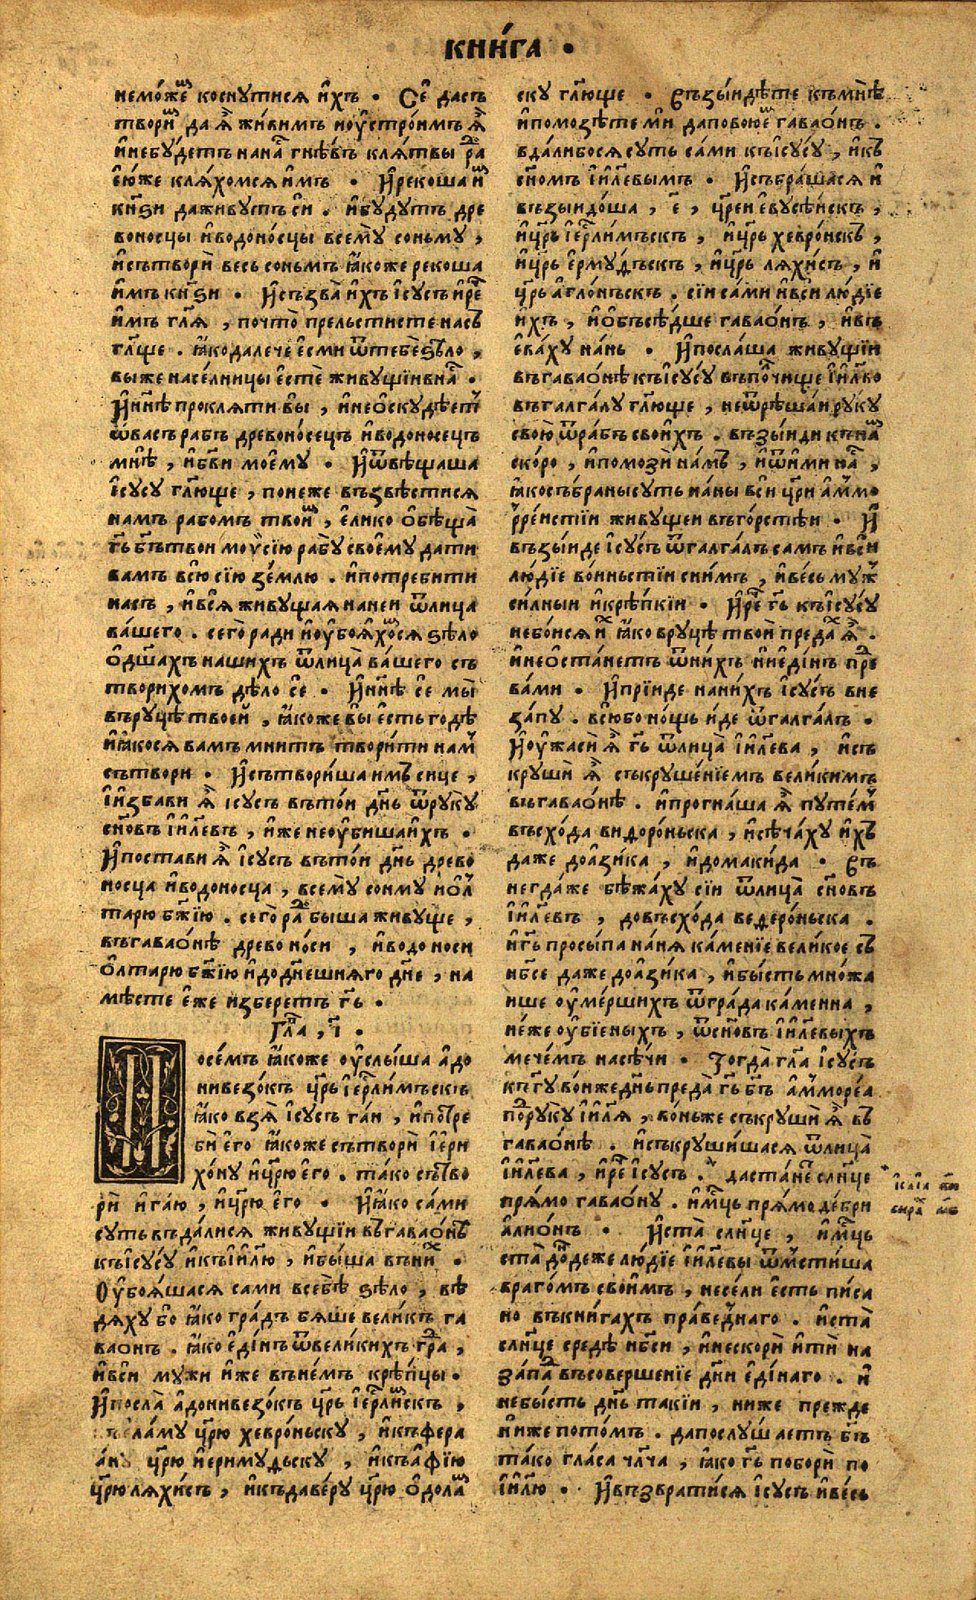 КНИ́ГА •
немо́жеⷨ коснꙋтисѧ и҆хъ • Се́ дастъ
твориⷨ даѧ҆̀ жи́вимъ ноꙋ҆стро́имъ ѧ҆̀
и҆небꙋ́детъ нанаⷭ гнѣ́въ клѧ́твы раⷣ
ею́же клѧ́хомсѧ и҆́мъ • И҆рекоша иⷨ
кн҃ѕи даживꙋтъ си . и҆бꙋ́дꙋтъ дре
воносцы и҆водоно́сцы всемꙋ̀ соньмꙋ ,
и҆сътвори̇̀ весь соньмъ ꙗ҆́коже рекоша
и҆́мъ кн҃ѕи • И҆съзва̀ и҆хъ і҆сꙋ́съ и҆реⷱ
и҆́мъ гл҃ѧ , почто̀ прельстисте насъ
гл҃ще . ꙗ҆́кодалече є҆сми ѿтебѐ ѕѣло ,
выже насе́лницы є҆стѐ живꙋщїивнаⷭ •
И҆нн҃ѣ проклѧти вы̀ , и҆неѡ҆скꙋдѣетⷮ
ѿвасъ рабъ древоно́сецъ и҆водоносецъ
мнѣ̀ , и҆бг҃ꙋ моємꙋ • И҆ѿвѣщаша
і҆сꙋсꙋ гл҃юще , понеже възвѣстисѧ
намъ рабомъ твоиⷨ , є҆лико ѡ҆бѣща̀
гь҃ бг҃ътвои моѷсїю рабꙋ̀ своємꙋ дати
вамъ всю̀ сїю зе́млю . и҆потребити
насъ , и҆всѧ̀ живꙋщаѧ нанеи ѿлица
ва́шего . сего̀ ради ноꙋ҆боѧ́хоⷨсѧ ѕѣло
ѡ҆дш҃ахъ нашихъ ѿлица̀ ва́шего съ
творихомъ дѣло се̇ • И҆нн҃ѣ се̇ мы̀
върꙋцѣ твоеи̇ , ꙗ҆́коже вы̀ є҆сть годѣ̀
и҆ꙗ҆косѧ вамъ мнитъ твори́ти намⷨ
сътвори • И҆сътвори́ша имъ сице ,
і҆и҆збави ѧ҆̀ і҆сꙋсъ въто́и дн҃ь ѿрꙋкꙋ̀
сн҃овъ і҆и҃левъ , и҆же неоꙋ҆биша и҆хъ •
И҆постави ѧ҆̀ і҆сꙋсъ въто́и дн҃ь древо
носца и҆водоносца , всемꙋ̀ сонмꙋ и҆ѡ҆л
тарю бж҃їю . сего̀ раⷣ быша живꙋще ,
въгаваѡ́нѣ древо но́си , и҆водо носи
ѡ҆лтарю бж҃їю и҆до дн҃ешнѧго дн҃е , на
мѣсте є҆же изберетъ гь҃ •
Глаⷡ , і҃ •
Посе́мъ ꙗ҆́коже оу҆слы́ша а҆до
нивезо́къ цр҃ь і҆ер҃ли́мъскїь
ꙗ҆́ко взѧ̀ і҆сꙋсъ гаи , и҆потре
би̇̀ є҆го ꙗ҆́коже сътвори̇̀ і҆ери
хо́нꙋ и҆цр҃ю є҆го . тако сътво
ри̇̀ и҆гаю , и҆цр҃ю є҆го • И҆ꙗ҆́ко са́ми
сꙋть въда́лисѧ живꙋщїи въгаваѡнѣ
къі҆сꙋ́сꙋ и҆къі҆и҃лю , и҆бы́ша въниⷯ •
Оу҆боѧ́шасѧ сами всебѣ̀ ѕѣло , вѣ
дѧхꙋ бо ꙗ҆́ко гра́дъ бѧше великъ га
ваѡнъ . ꙗ҆́ко є҆ди́нъ ѿвели́кихъ граⷣ ,
и҆всѝ мꙋжи и҆же въне́мъ крѣпцы •
И҆посла̀ а҆донивезо́къ цр҃ь і҆ер҃лиⷨскъ ,
ла́мꙋ цр҃ю хевро́ньскꙋ , и҆къфера
цр҃ю и҆еримꙋдьскꙋ , и҆къа҆фїю
цр҃ю лѧхи́съ , и҆къдаве́рꙋ цр҃ю ѡ҆долаⷨ
скꙋ гл҃юще • Възы́идѣте къмнѣ̀
и҆помозѣ́те ми даповоюеⷨ гаваѡ́нъ .
вда́либосѧ сꙋть са́ми къі҆сꙋсꙋ , и҆къ
сн҃омъ і҆и҃левымъ • И҆събра́шасѧ и҆
възыидо́ша , е҃ , цр҃еи є҆вꙋсѣ́искъ ,
и҆цр҃ь і҆ер҃ли́мъскъ , и҆цр҃ь хевро́нскъ ,
и҆цр҃ь є҆рмꙋ́дъскъ , и҆цр҃ь лѧхи́съ , и҆
цр҃ь а҆гло́нъскъ . сїи са́ми и҆всѝ лю́дїе
и҆хъ , и҆ѡ҆бъсѣ́дше гаваѡ́нъ , и҆въ
є҆ва́хꙋ на́нь • И҆посла́ша живꙋщїи
въгаваѡ́нѣ къі҆сꙋсꙋ въполчище і҆и҃лво
въгалга́лꙋ гл҃юще , неѿрѣша́и рꙋкꙋ
свою̀ ѿра́бъ свои́хъ . възы́иди къна̀ⷨ
ско́ро , и҆помозѝ на́мъ , и҆ѿи҆ми наⷭ ,
ꙗ҆косъбранысꙋть на́ны всѝ цр҃и а҆мⷨмо
ррѐистїи живꙋщеи въго́рстѣи • И҆
възы́иде і҆сꙋ́съ ѿгалга́лъ самъ и҆всѝ
лю́дїе во́иньстїи сни́мъ , и҆ве́сь мꙋⷤ
си́лныи и҆крѣ́пкїи • И҆реⷱ гь҃ къі҆сꙋсꙋ
небо́исѧ иⷯ ꙗ҆́ко врꙋцѣ̀ твоѝ предаⷯ ѧ҆̀ .
и҆неѡ҆ста́нетъ ѿни́хъ ни҆є҆ди́нъ преⷣ
ва́ми • И҆прїиде нани́хъ і҆сꙋсъ вне
за́пꙋ . всю̀бо но́щь и҆́де ѿгалга́лъ •
И҆оу҆жасѝ ѧ҆̀ гь҃ ѿлица̀ і҆и҃лева , и҆съ
крꙋшѝ ѧ҆̀ съкрꙋше́нїемъ вели́кимъ
въгаваѡ́нѣ . и҆прогна́ша ѧ҆̀ пꙋте́мⷨ
въсхо́да видоро́ньска , и҆сѣча́хꙋ и҆́хъ
да́же доа҆зи́ка , и҆домаки́да • Въ
негда́же бѣжа́хꙋ сїи ѿлица̀ сн҃овъ
і҆и҃левъ , довъсхо́да ведеро́ньска .
и҆гь҃ просы́па на́нѧ ка́менїе вели́кое съ
нб҃се да́же доа҆зи́ка , и҆бы́сть мно́жа
ише оу҆ме́ршихъ ѿгра́да ка́менна ,
не́же оу҆бїеныхъ , ѿсн҃овъ і҆и҃левыхъ
мече́мъ насѣ́чи • Тогда̀ гл҃а і҆сꙋсъ
къгꙋ҃ во́ньжедн҃ьпреда̀ гь҃ бг҃ъ а҆мморе́а
подⷣрꙋкꙋ і҆и҃лѧ , во́ньже съкрꙋшѝ ѧ҆̀ въ
гаваѡ́нѣ . и҆съкрꙋши́шасѧ ѿлица̀
і҆и҃лева , и҆реⷱ і҆сꙋсъ . даста́нетⷮ сл҃нце
прѧ́мо гаваѡ́нꙋ . и҆мⷭ҇ць прѧ́мо де́бри
а҆лиѡ́нъ • И҆ста̀ сл҃нце , и҆мⷭ҇ць
ста̀ дон҃деже лю́дїе і҆и҃левы ѿмсти́ша
враго́мъ свои́мъ , несели є҆сть пи́са
но въкни́гахъ пра́веднаго . и҆ста̀
сл҃нце средѣ̀ нб҃си , и҆нескорѝ и҆тѝ на
за́паⷣ въсоверше́нїе дн҃и є҆ди́наго . и҆
небы́сть дн҃ь таки́и , ниже пре́жде
ниже пото́мъ . дапослꙋ́шаетъ бг҃ъ
та́ко гла́са чл҃ча , ꙗ҆́ко гь҃ поборѝ по
і҆и҃лю • И҆възврати́сѧ і҆сꙋсъ и҆ве́сь